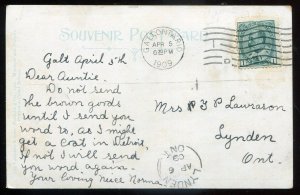 SOUVENIR POST CARD
GALT, ONT.
APR 5
6 30 PM
1909
Galt April 5th
Dear Auntie.
Do not send
the brown goods
until I send you
word to, as I might
get a coat in Detroit.
If not I will send
you word again.
Your loving niece Norma.
Mrs P F Lawrason
Lynden
Ont.
LYNDEN
AP 6
09
ONT